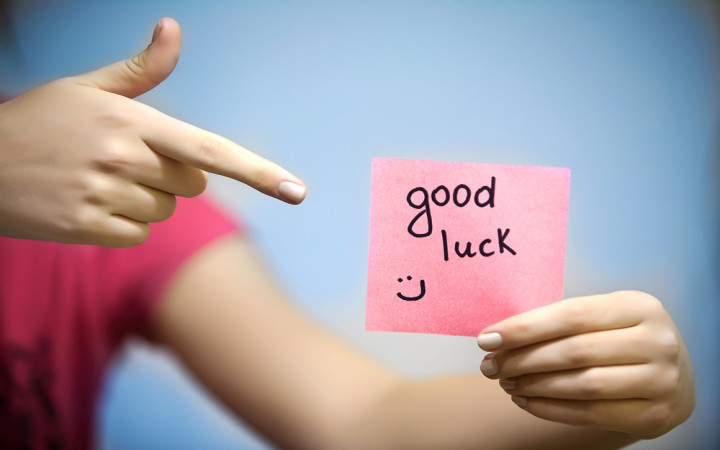 good
luck